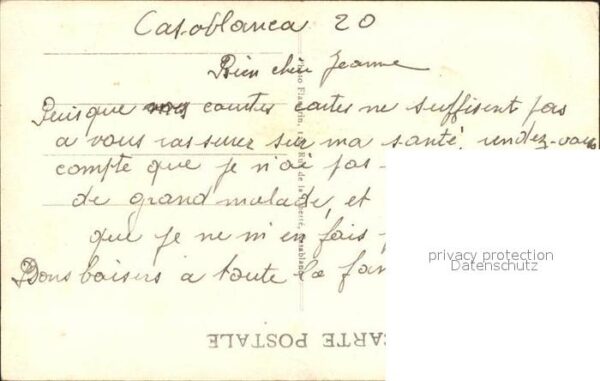 Casablanca 20
Bien chère Jeanne
Puisque mes courtes cartes ne suffisent pas
a vous rassurer sur ma santé, rendez-vous
compte que je n'ai pas
de grand malade, et
que je ne m'en fais
Bons baisers a toute la fam
CARTE POSTALE
privacy protection
Datenschutz